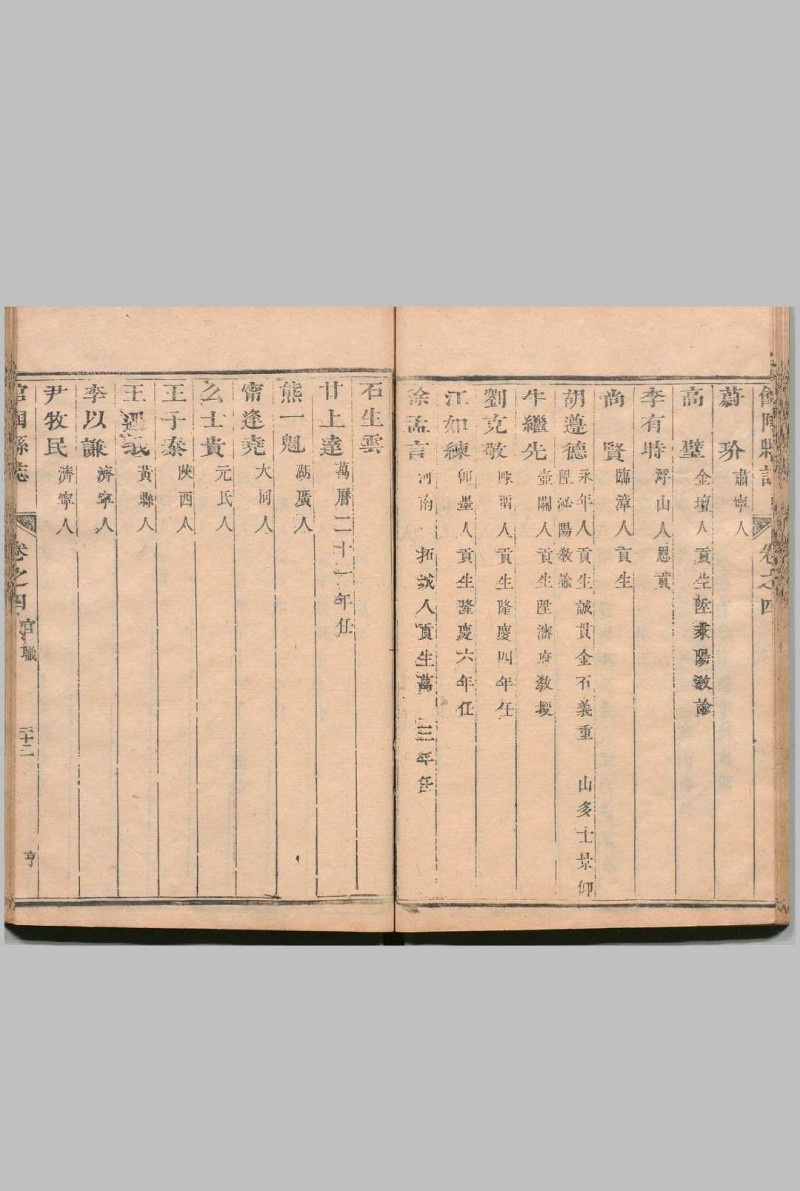 館陶縣誌 卷之四
蔚玠 肅寧人
高璧 金壇人貢生陞耒陽教諭
李有時 浮山人恩貢
尚賢 臨漳人貢生
胡遵德 永年人貢生誠貫金石義重 山多士景仰
陞泌陽教諭
牛繼先 壺關人貢生陞瀋府教授
劉克敬 人貢生隆慶四年任
江如練 卽墨人貢生隆慶六年任
徐孟言 河南 拓城人貢生萬 三年任
石生雲
甘上達 萬曆二十一年任
熊一魁 湖廣人
甯逢堯 大同人
么士貴 元氏人
王于泰 陝西人
王運 黃縣人
李以謙 濟寧人
尹牧民 濟寧人
館陶縣誌 卷之四 官職 三十二 亨